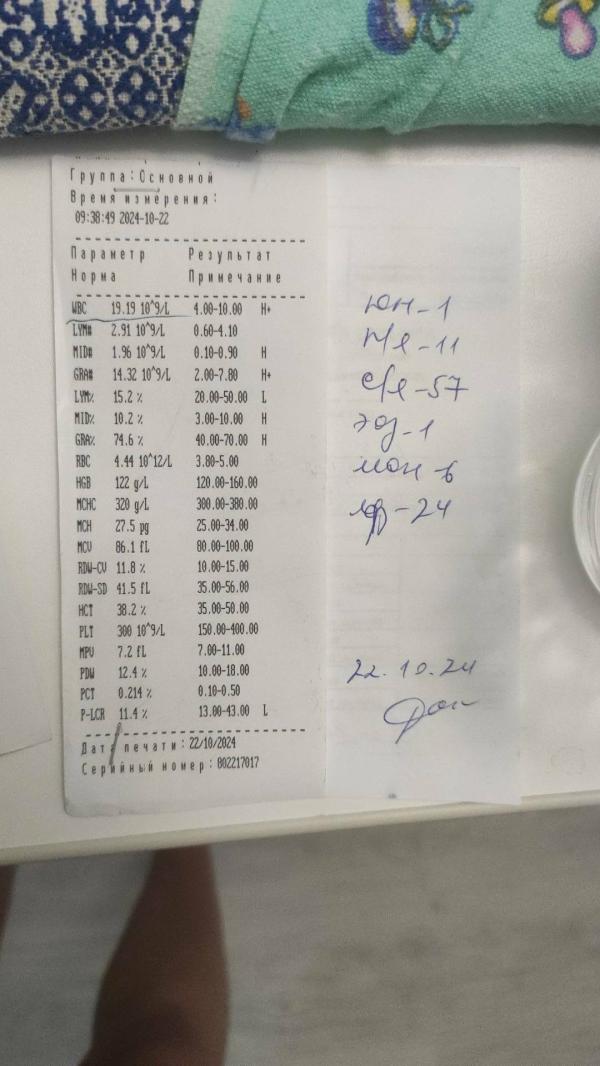 Группа: Основной
Время измерения:
09:38:49 2024-10-22
Параметр Результат
Норма Примечание
WBC 19.19 10^9/L 4.00-10.00 H*
LYM# 2.91 10^9/L 0.60-4.10
MID# 1.96 10^9/L 0.10-0.90 H
GRA# 14.32 10^9/L 2.00-7.80 H*
LYM% 15.2 % 20.00-50.00 L
MID% 10.2 % 3.00-10.00 H
GRA% 74.6 % 40.00-70.00 H
RBC 4.44 10^12/L 3.80-5.00
HGB 122 g/L 120.00-160.00
MCHC 320 g/L 300.00-380.00
MCH 27.5 pg 25.00-34.00
MCV 86.1 fL 80.00-100.00
RDW-CV 11.8 % 10.00-15.00
RDW-SD 41.5 fL 35.00-56.00
HCT 38.2 % 35.00-50.00
PLT 300 10^9/L 150.00-400.00
MPV 7.2 fL 7.00-11.00
PDW 12.4 % 10.00-18.00
PCT 0.214 % 0.10-0.50
P-LCR 11.4 % 13.00-43.00 L
Дата печати: 22/10/2024
Серийный номер: 802217017
юн-1
п/я-11
с/я-57
эоз-1
мон-6
лф-24
22.10.24